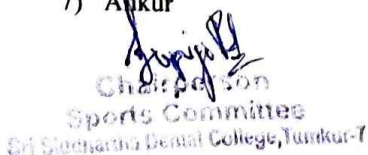 7) Ankur
Chairperson
Sports Committee
Sri Siddhartha Dental College, Tumkur-7